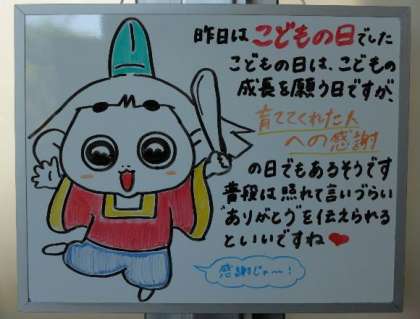 昨日は こどもの日でした
こどもの日は、こどもの
成長を願う日ですが、
育ててくれた人
への感謝
の日でもあるそうです
普段は照れて言いづらい
"ありがとう"を伝えられる
といいですね
感謝じゃ〜!